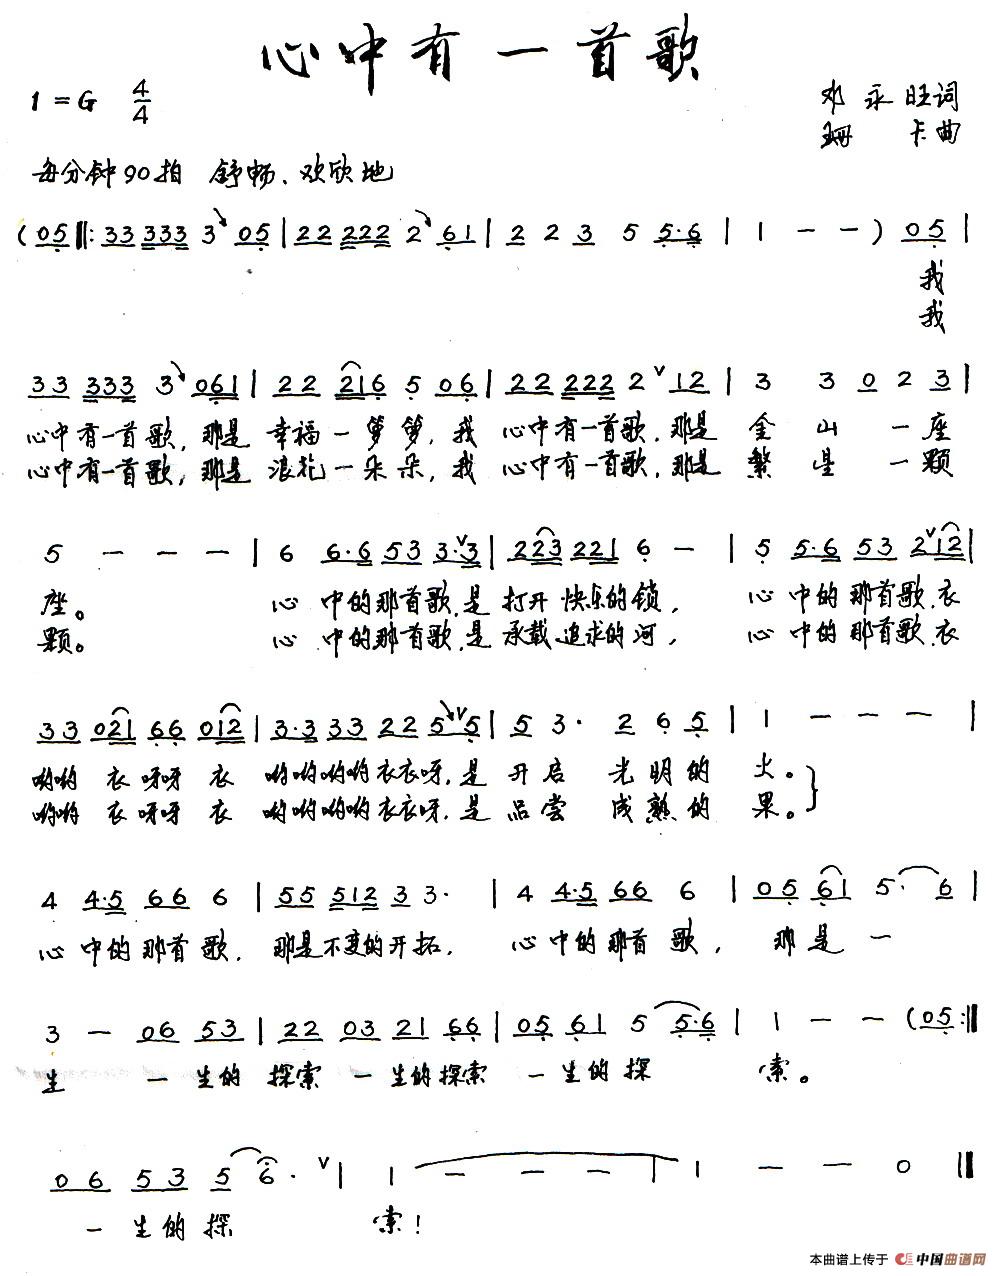 心中有一首歌
1=G 4/4
邓永旺词
珊卡曲
每分钟90拍 舒畅、欢欣地
(05‖: 33 333 3 05 | 22 222 2 61 | 2 2 3 5 5·6 | 1 - - ) 05 |
我
我
33 333 3 061 | 22 216 5 06 | 22 222 2 ∨ 12 | 3 3 0 2 3 |
心中有一首歌,那是 幸福一箩箩,我 心中有一首歌,那是 金山 一座
心中有一首歌,那是 浪花一朵朵,我 心中有一首歌,那是 繁星 一颗
5 - - - | 6 6·6 53 3·∨3 | 223 221 6 - | 5 5·6 53 2∨12 |
座。 心 中的那首歌,是 打开 快乐的锁, 心 中的那首歌,衣
颗。 心 中的那首歌,是 承载 追求的河, 心 中的那首歌,衣
33 021 66 012 | 3·3 33 22 5∨5 | 5 3· 2 6 5 | 1 - - - |
哟哟 衣呀呀 衣 哟哟哟哟衣衣呀,是 开启 光明的 火。
哟哟 衣呀呀 衣 哟哟哟哟衣衣呀,是 品尝 成熟的 果。
4 4·5 66 6 | 55 512 3 3· | 4 4·5 66 6 | 05 61 5· 6 |
心 中的那首歌, 那是不变的开拓, 心 中的那首 歌, 那是 一
3 - 06 53 | 22 03 21 66 | 05 61 5 5·6 | 1 - - (05:‖
生 一 生的 探索 一生的探索 一生的探 索。
06 53 5 6· ∨ | 1 - - - | 1 - - 0 ‖
一生的探 索!
本曲谱上传于 中国曲谱网